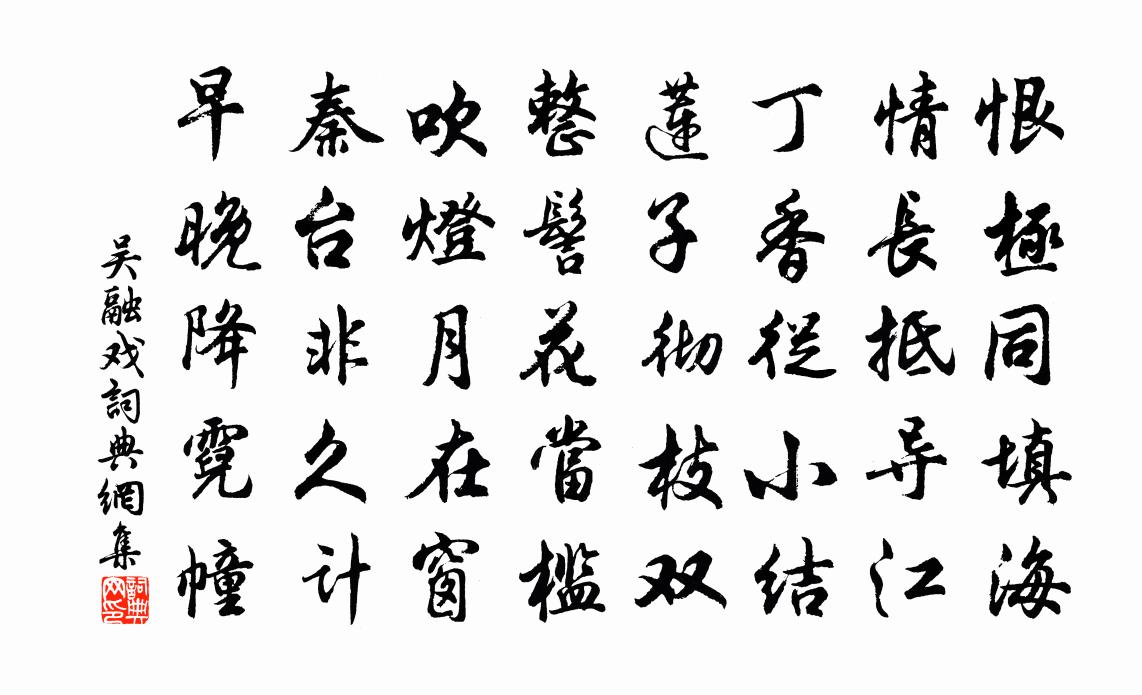 恨極同填海
情長抵导江
丁香從小結
蓮子彻枝双
整髻花當檻
吹燈月在窗
秦台非久計
早晚降霓幢
吴融戏詞典網集
詞典网印